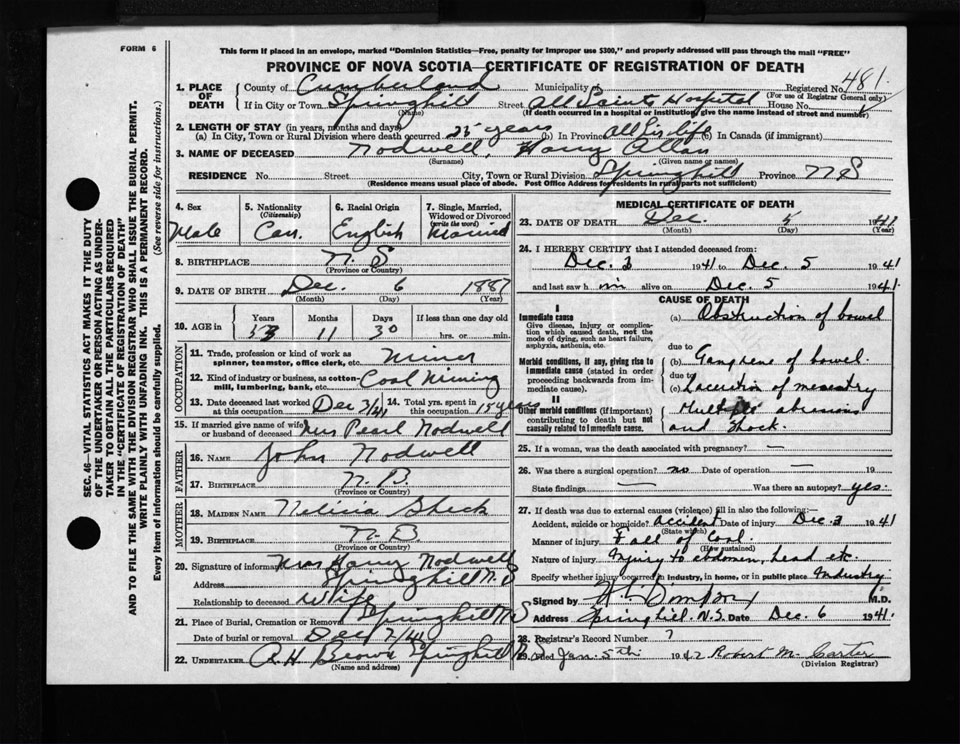 FORM 6
This form if placed in an envelope, marked "Dominion Statistics—Free, penalty for improper use $300," and properly addressed will pass through the mail "FREE"
PROVINCE OF NOVA SCOTIA—CERTIFICATE OF REGISTRATION OF DEATH
SEC. 46—VITAL STATISTICS ACT MAKES IT THE DUTY
OF THE UNDERTAKER OR PERSON ACTING AS UNDER-
TAKER TO OBTAIN ALL THE PARTICULARS REQUIRED
IN THE "CERTIFICATE OF REGISTRATION OF DEATH"
AND TO FILE THE SAME WITH THE DIVISION REGISTRAR WHO SHALL ISSUE THE BURIAL PERMIT.
WRITE PLAINLY WITH UNFADING INK. THIS IS A PERMANENT RECORD.
Every item of information should be carefully supplied. (See reverse side for instructions.)
1. PLACE OF DEATH County of Cumberland Municipality of Registered No. 481
(For use of Registrar General only)
If in City or Town Springhill Street All Saints Hospital House No.
(Name) (If death occurred in a hospital or institution, give the name instead of street and number)
2. LENGTH OF STAY (in years, months and days)
(a) In City, Town or Rural Division where death occurred 25 years (b) In Province All his life (c) In Canada (if immigrant)
3. NAME OF DECEASED Nodwell, Harry Allan
(Surname) (Given name or names)
RESIDENCE No. Street City, Town or Rural Division Springhill Province N S
(Residence means usual place of abode. Post Office Address for residents in rural parts not sufficient)
4. Sex Male
5. Nationality (Citizenship) Can.
6. Racial Origin English
7. Single, Married, Widowed or Divorced (write the word) Married
8. BIRTHPLACE N. S
(Province or Country)
9. DATE OF BIRTH Dec. 6 1887
(Month) (Day) (Year)
10. AGE in Years Months Days If less than one day old
53 11 30 hrs. or min.
OCCUPATION
11. Trade, profession or kind of work as spinner, teamster, office clerk, etc. Miner
12. Kind of industry or business, as cotton-mill, lumbering, bank, etc. Coal Mining
13. Date deceased last worked at this occupation Dec 3/41 14. Total yrs. spent in this occupation 15 years
15. If married give name of wife or husband of deceased Pearl Nodwell
FATHER
16. NAME John Nodwell
17. BIRTHPLACE N. B.
(Province or Country)
MOTHER
18. MAIDEN NAME
19. BIRTHPLACE N. B
(Province or Country)
20. Signature of informant Mrs Harry Nodwell
Address Springhill N.S
Relationship to deceased Wife
21. Place of Burial, Cremation or Removal Springhill N.S
Date of burial or removal Dec 7/41
22. UNDERTAKER A. H. Brown Springhill N.S
(Name and address)
MEDICAL CERTIFICATE OF DEATH
23. DATE OF DEATH Dec. 5 1941
(Month) (Day) (Year)
24. I HEREBY CERTIFY that I attended deceased from:
Dec. 3 1941 to Dec. 5 1941
and last saw h im alive on Dec. 5 1941.
CAUSE OF DEATH
I
Immediate cause
Give disease, injury or complication which caused death, not the mode of dying, such as heart failure, asphyxia, asthenia, etc.
(a) Obstruction of bowel
due to
Morbid conditions, if any, giving rise to immediate cause (stated in order proceeding backwards from immediate cause).
(b) Ganghene of bowel.
due to
(c) Laceration of mesentry
II
Other morbid conditions (if important) contributing to death but not causally related to immediate cause.
Multiple abrasions
and Shock.
25. If a woman, was the death associated with pregnancy? —
26. Was there a surgical operation? no Date of operation — 19
State findings — Was there an autopsy? yes.
27. If death was due to external causes (violence) fill in also the following:
Accident, suicide or homicide? Accident Date of injury Dec. 3 1941
(State which)
Manner of injury Fall of Coal.
(How sustained)
Nature of injury Injury to abdomen, head etc.
Specify whether injury occurred in industry, in home, or in public place Industry
Signed by M.D.
Address Springhill. N.S. Date Dec. 6 1941.
28. Registrar's Record Number 7
29. Filed Jan. 5th 1942 Robert M. Carter
(Division Registrar)